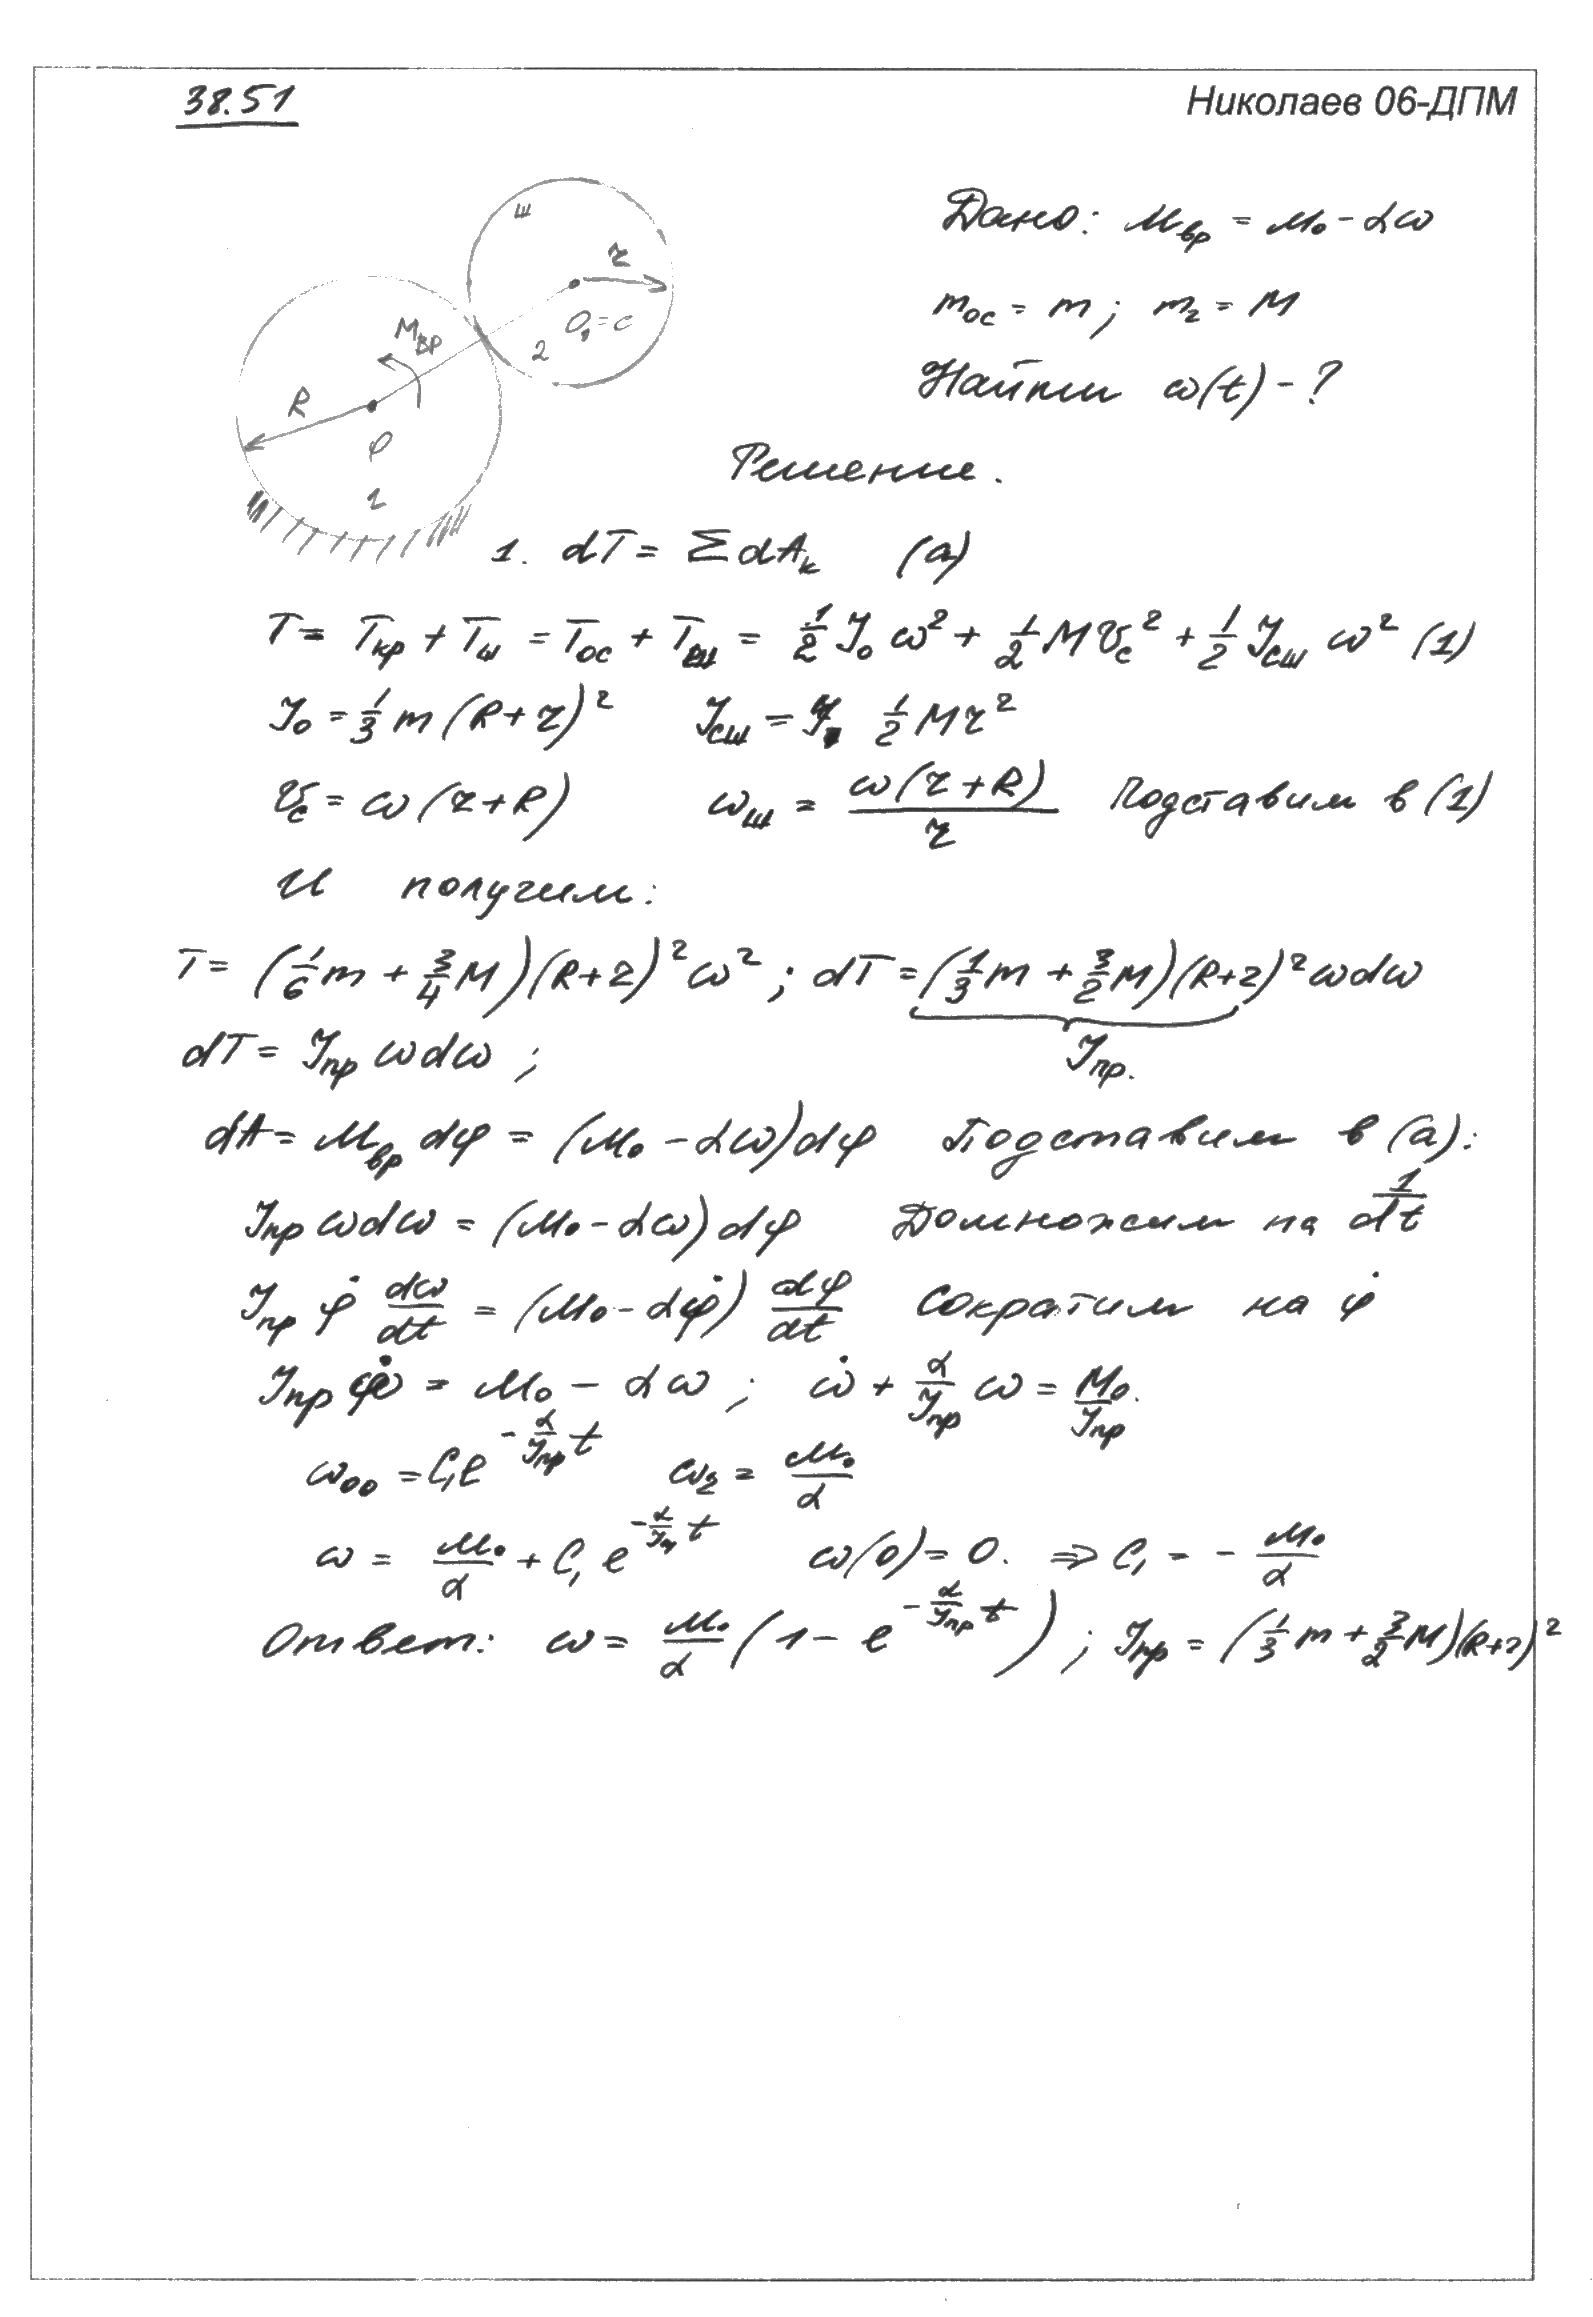 38.51
Николаев 06-ДПМ
ш
r
O₁=C
2
M_вр
R
φ
1
Дано: M_вр = M₀ - αω
m_ос = m; m₂ = M
Найти ω(t) - ?
Решение.
1. dT = ΣdA_к (a)
T = T_кр + T_ш = T_ос + T_ш = 1/2 J₀ ω² + 1/2 M V_c² + 1/2 J_сш ω² (1)
J₀ = 1/3 m (R+r)² J_сш = 1/2 M r²
V_c = ω (r+R) ω_ш = ω(r+R)/r Подставим в (1)
и получим:
T = (1/6 m + 3/4 M)(R+r)² ω²; dT = (1/3 m + 3/2 M)(R+r)² ω dω
dT = J_пр ω dω; J_пр.
dA = M_вр dφ = (M₀ - αω) dφ Подставим в (a):
J_пр ω dω = (M₀ - αω) dφ Домножим на 1/dt
J_пр φ̇ dω/dt = (M₀ - αφ̇) dφ/dt Сократим на φ̇
J_пр ω̇ = M₀ - αω; ω̇ + α/J_пр ω = M₀/J_пр.
ω₀₀ = C₁ e^(-α/J_пр t) ω₂ = M₀/α
ω = M₀/α + C₁ e^(-α/J_пр t) ω(0) = 0. ⇒ C₁ = - M₀/α
Ответ: ω = M₀/α (1 - e^(-α/J_пр t)); J_пр = (1/3 m + 3/2 M)(R+r)²